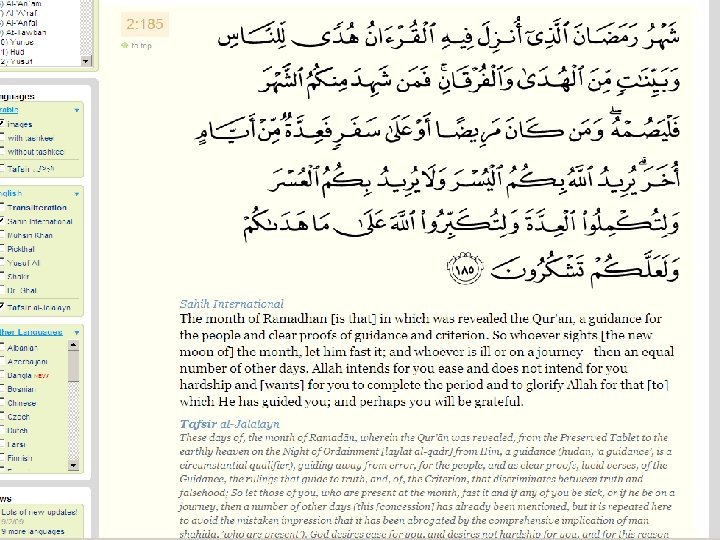 ) Al-'An'am
) Al-'A`raf
) Al-'Anfal
) At-Tawbah
0) Yunus
1) Hud
2) Yusuf
nguages
rabic
images
with tashkeel
without tashkeel
Tafsir
nglish
Transliteration
Sahih International
Muhsin Khan
Pickthall
Yusuf Ali
Shakir
Dr. Ghali
Tafsir al-Jalalayn
ther Languages
Albanian
Azerbaijani
Bangla NEW!
Bosnian
Chinese
Czech
Dutch
Farsi
Finnish
ws
Lots of new updates!
9/2/09
9 more languages
2:185
to top
شَهْرُ رَمَضَانَ ٱلَّذِىٓ أُنزِلَ فِيهِ ٱلْقُرْءَانُ هُدًى لِّلنَّاسِ
وَبَيِّنَـٰتٍ مِّنَ ٱلْهُدَىٰ وَٱلْفُرْقَانِ ۚ فَمَن شَهِدَ مِنكُمُ ٱلشَّهْرَ
فَلْيَصُمْهُ ۖ وَمَن كَانَ مَرِيضًا أَوْ عَلَىٰ سَفَرٍ فَعِدَّةٌ مِّنْ أَيَّامٍ
أُخَرَ ۗ يُرِيدُ ٱللَّهُ بِكُمُ ٱلْيُسْرَ وَلَا يُرِيدُ بِكُمُ ٱلْعُسْرَ
وَلِتُكْمِلُوا۟ ٱلْعِدَّةَ وَلِتُكَبِّرُوا۟ ٱللَّهَ عَلَىٰ مَا هَدَىٰكُمْ
وَلَعَلَّكُمْ تَشْكُرُونَ ١٨٥
Sahih International
The month of Ramadhan [is that] in which was revealed the Qur'an, a guidance for
the people and clear proofs of guidance and criterion. So whoever sights [the new
moon of] the month, let him fast it; and whoever is ill or on a journey - then an equal
number of other days. Allah intends for you ease and does not intend for you
hardship and [wants] for you to complete the period and to glorify Allah for that [to]
which He has guided you; and perhaps you will be grateful.
Tafsir al-Jalalayn
These days of, the month of Ramadān, wherein the Qur'ān was revealed, from the Preserved Tablet to the
earthly heaven on the Night of Ordainment [laylat al-qadr] from Him, a guidance (hudan, 'a guidance', is a
circumstantial qualifier), guiding away from error, for the people, and as clear proofs, lucid verses, of the
Guidance, the rulings that guide to truth, and, of, the Criterion, that discriminates between truth and
falsehood; So let those of you, who are present at the month, fast it and if any of you be sick, or if he be on a
journey, then a number of other days (this [concession] has already been mentioned, but it is repeated here
to avoid the mistaken impression that it has been abrogated by the comprehensive implication of man
shahida, 'who are present'). God desires ease for you, and desires not hardship for you, and for this reason